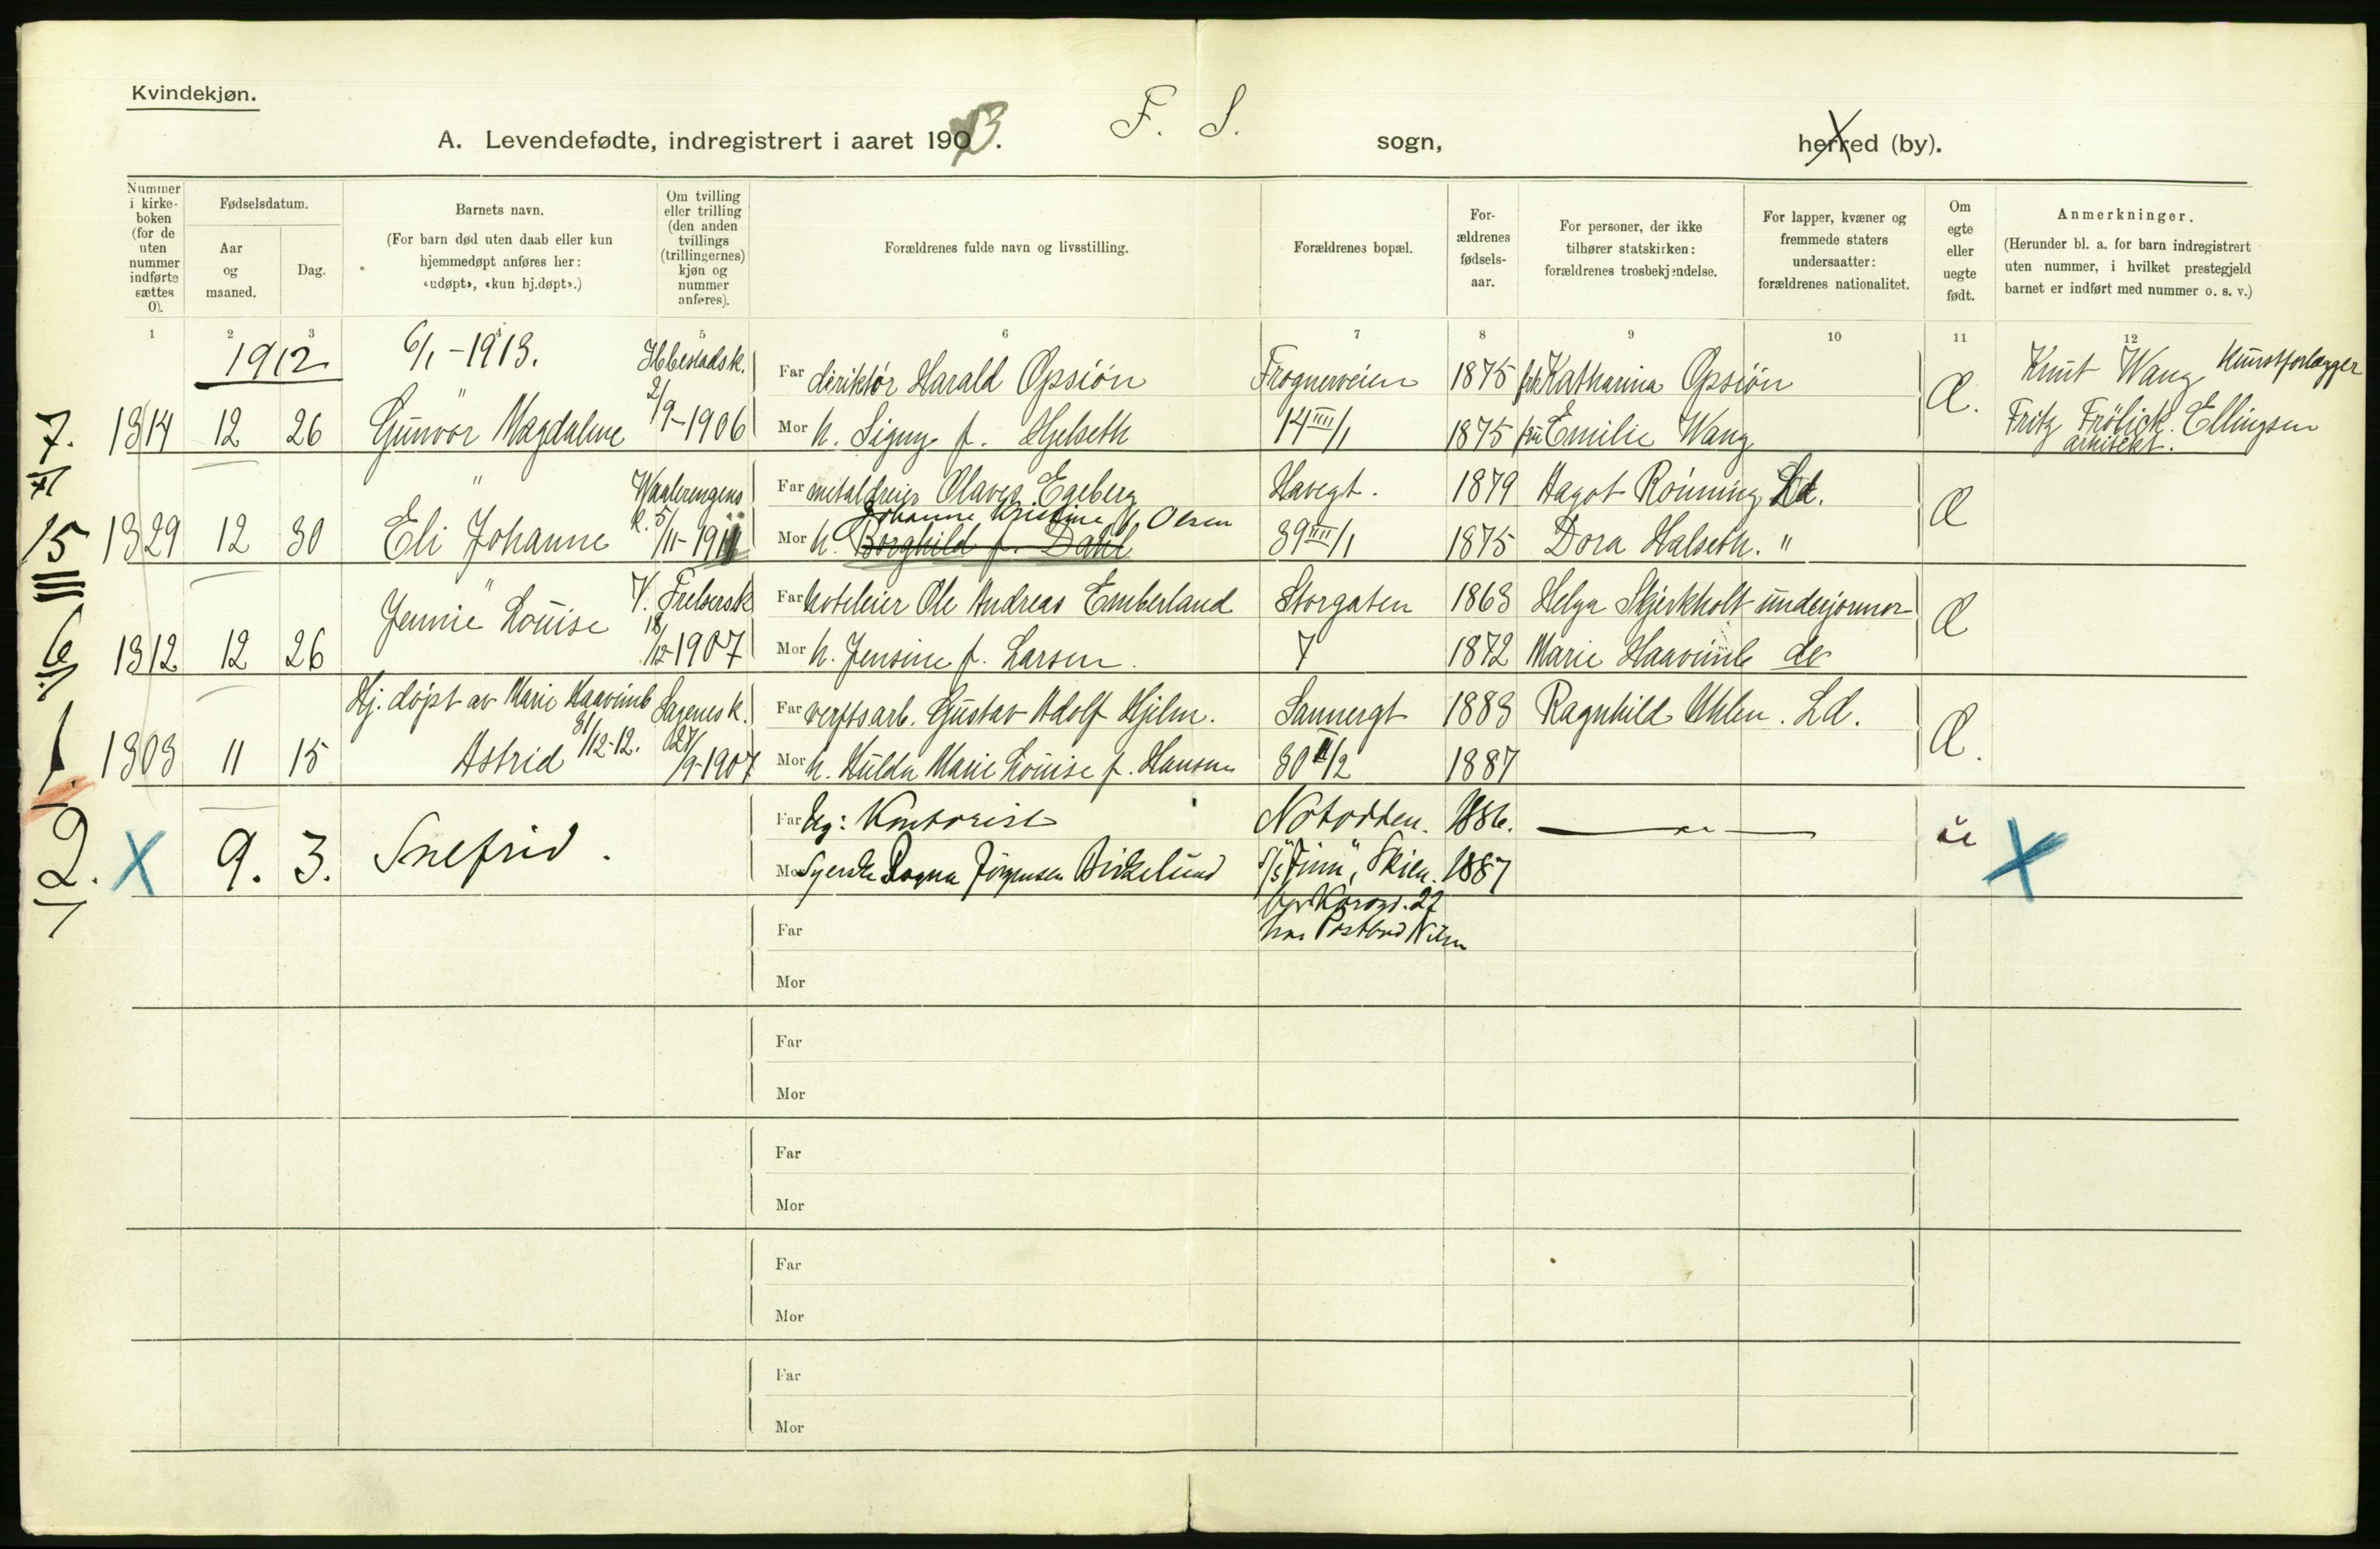 Kvindekjøn.
A. Levendefødte, indregistrert i aaret 1903. F. S. sogn, herred (by).
Nummer i kirke-boken (for de uten nummer indførte sættes 0).
Fødselsdatum.
Aar og maaned.
Dag.
Barnets navn.
(For barn død uten daab eller kun hjemmedøpt anføres her: «udøpt», «kun hj.døpt».)
Om tvilling eller trilling (den anden tvillings (trillingernes) kjøn og nummer anføres).
Forældrenes fulde navn og livsstilling.
Forældrenes bopæl.
For-ældrenes fødsels-aar.
For personer, der ikke tilhører statskirken: forældrenes trosbekjendelse.
For lapper, kvæner og fremmede staters undersaatter: forældrenes nationalitet.
Om egte eller uegte født.
Anmerkninger.
(Herunder bl. a. for barn indregistrert uten nummer, i hvilket prestegjeld barnet er indført med nummer o. s. v.)
1 2 3 4 5 6 7 8 9 10 11 12
1912 6/1 - 1913. Ibbestadsk. Far direktør Harald Opsiön Frognerveien 1875 frk Katharina Opsiön Æ. Knut Wang Kunstforlægger
7. 1314 12 26 Gunvor Magdalene 2/9-1906 Mor h. Signy f. Hjelseth 14 IIII/1 1875 fru Emilie Wang Fritz Frölich Ellingsen
arkitekt.
" Waalerengens Far metaldreier Olaves Egeberg Havegt. 1879 Hagot Rönning Ld. Æ
Johanne Kristine f. Olsen
15 1329 12 30 Eli Johanne k. 5/11-1911 Mor h. Borghild f. Dahl 39 III/1 1875 Dora Halseth. "
Jennie Louise V. Frelsersk Far hoteleier Ole Andreas Emberland Storgaten 1863 Helga Skjerkholt underjormor Æ
6 1312 12 26 18/12-1907 Mor h. Jensine f. Larsen. 7 1872 Marie Haavimb do
Hj. døpt av Marie Haavimb Sagenesk. Far verftsarb. Gustav Adolf Hjelm. Sannergt 1883 Ragnhild Uhlen. Ld. Æ.
1. 1303 11 15 Astrid 31/12-12. 27/9-1907 Mor h. Hulda Marie Louise f. Hansen 30 II/2 1887
Far Ug: Kontorist Notodden. 1886. — " — u
12. X 9. 3. Snefrid. Mor Syerske Ragna Jörgensen Birkelund S/S "Finn", Skien. 1887 X
hos Postbud Nilsen
Far
Mor
Far
Mor
Far
Mor
Far
Mor
Far
Mor